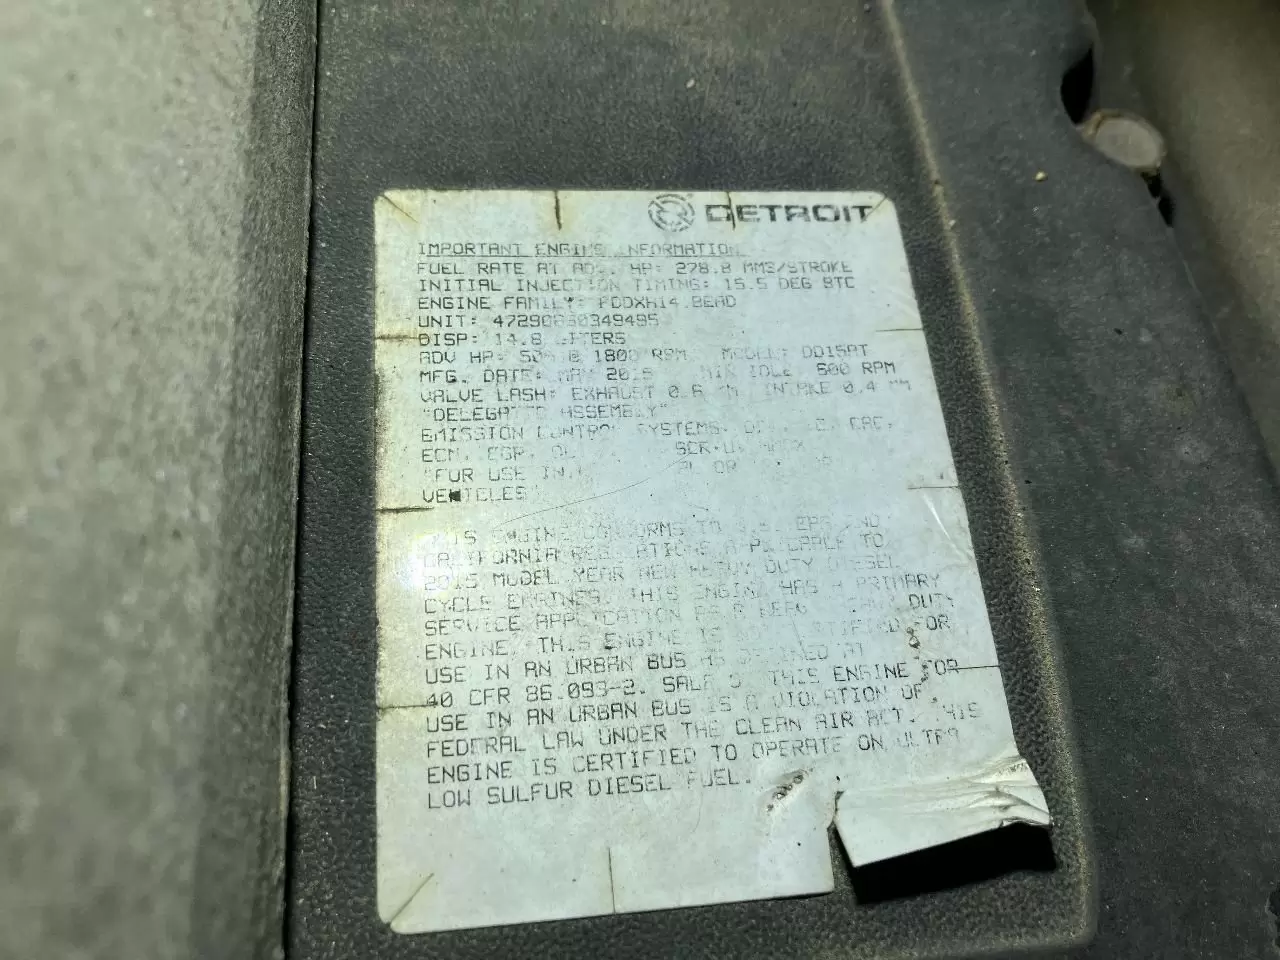 DETROIT
IMPORTANT ENGINE INFORMATION
FUEL RATE AT ADV. HP: 278.8 MM3/STROKE
INITIAL INJECTION TIMING: 15.5 DEG BTC
ENGINE FAMILY:
UNIT:
DISP: 14.8 LITERS
ADV HP: @ 1800 RPM MODEL: DD15AT
MFG. DATE: 2015 MIN IDLE 600 RPM
VALVE LASH: EXHAUST INTAKE 0.4 MM
"DELEGATED ASSEMBLY"
EMISSION CONTROL SYSTEMS: CAC,
ECM, EGR,
"FOR USE IN OR
VEHICLES
THIS ENGINE CONFORMS TO U.S. EPA AND
CALIFORNIA REGULATIONS APPLICABLE TO
2015 MODEL YEAR NEW HEAVY DUTY DIESEL
CYCLE ENGINES. THIS ENGINE HAS A PRIMARY
SERVICE APPLICATION AS A HEAVY HEAVY DUTY
ENGINE. THIS ENGINE IS NOT CERTIFIED FOR
USE IN AN URBAN BUS AS DEFINED AT
40 CFR 86.093-2. SALE OF THIS ENGINE FOR
USE IN AN URBAN BUS IS A VIOLATION OF
FEDERAL LAW UNDER THE CLEAN AIR ACT. THIS
ENGINE IS CERTIFIED TO OPERATE ON ULTRA
LOW SULFUR DIESEL FUEL.